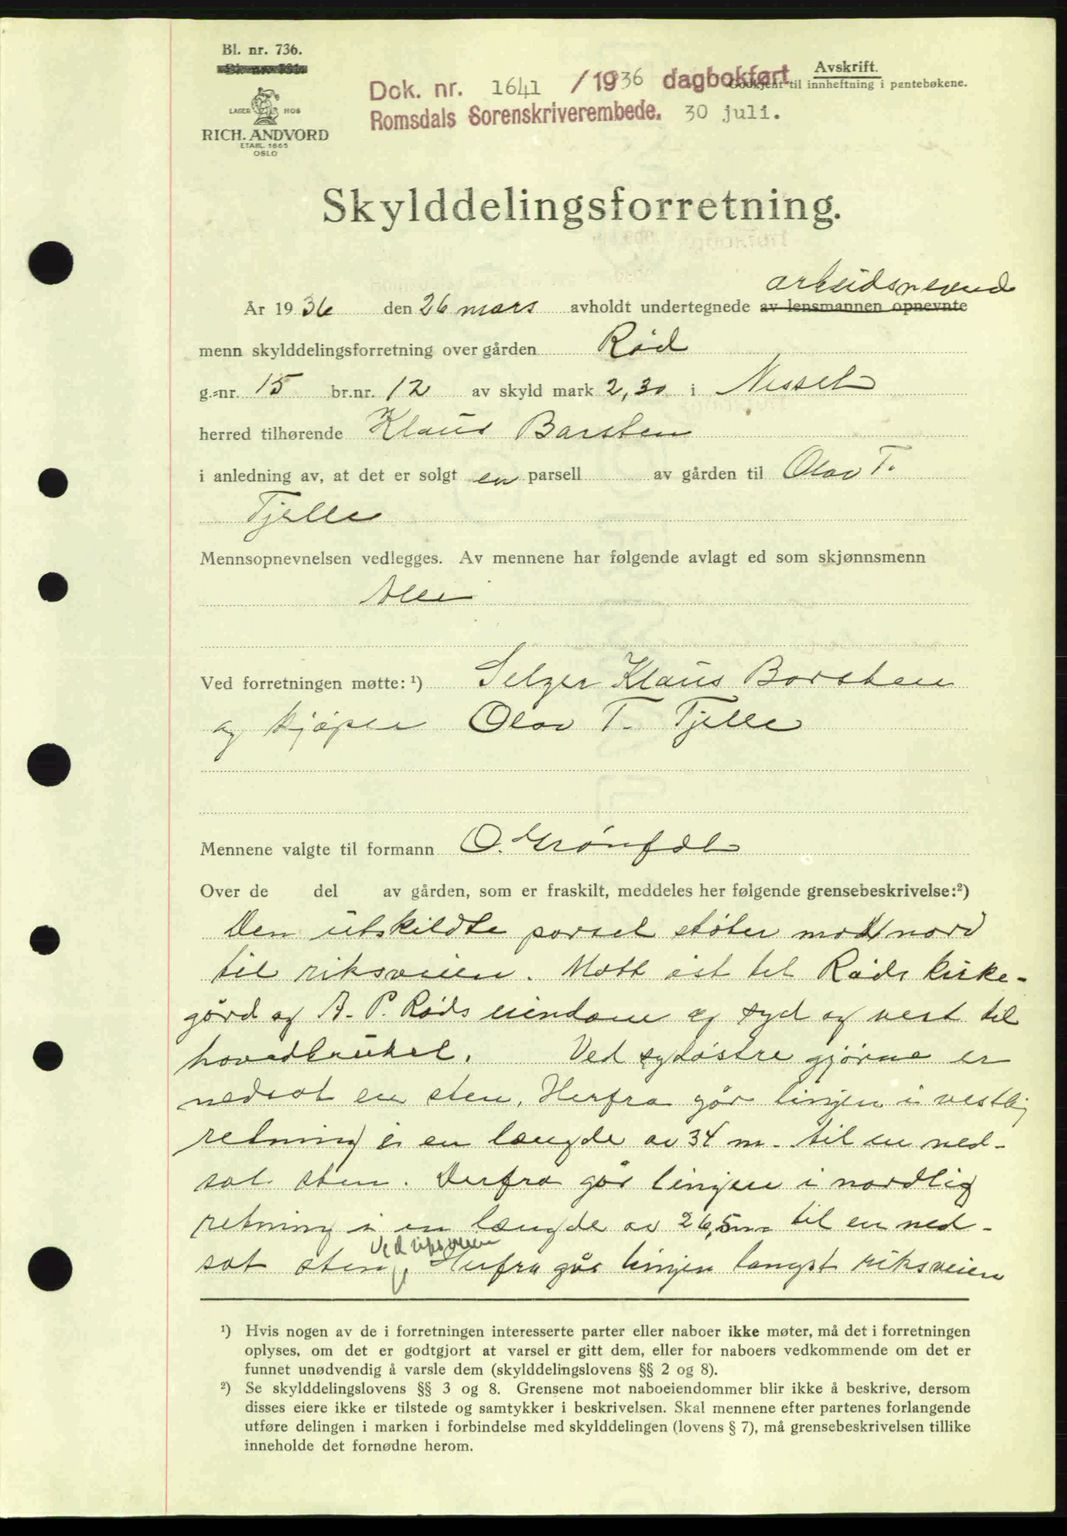 Bl. nr. 736.
Avskrift.
Dok. nr. 1641 /1936 dagbokført
Godkjent til innheftning i pantebøkene.
Romsdals Sorenskriverembede. 30 juli.
LAGER HOS
RICH. ANDVORD
ETABL. 1865
OSLO
Skylddelingsforretning.
arbeidsnevnd
År 1936 den 26 mars avholdt undertegnede av lensmannen opnevnte
menn skylddelingsforretning over gården Rød
g.-nr. 15 br.nr. 12 av skyld mark 2,30 i Nesset
herred tilhørende Klaus Barsten
i anledning av, at det er solgt en parsell av gården til Olav T.
Tjelle
Mennsopnevnelsen vedlegges. Av mennene har følgende avlagt ed som skjønnsmenn
Alle
Ved forretningen møtte: ¹) Selger Klaus Barsten
og kjøper Olav T. Tjelle
Mennene valgte til formann O. Grønfdl
Over de del av gården, som er fraskilt, meddeles her følgende grensebeskrivelse:²)
Den utskildte parsel støter mod nord
til riksveien. Mott øst til Røds kirke-
gård og A. P. Røds eiendom og syd og vest til
hovedbruket. Ved sydøstre hjørne er
nedsat en sten. Herfra går linjen i vestlig
retning i en længde av 34 m. til en ned-
sat sten. Derfra går linjen i nordlig
retning i en længde av 26,5 m til en ned-
ved riksveien
sat sten. Herfra går linjen langst riksveien
¹) Hvis nogen av de i forretningen interesserte parter eller naboer ikke møter, må det i forretningen
oplyses, om det er godtgjort at varsel er gitt dem, eller for naboers vedkommende om det er
funnet unødvendig å varsle dem (skylddelingslovens §§ 2 og 8).
²) Se skylddelingslovens §§ 3 og 8. Grensene mot naboeiendommer blir ikke å beskrive, dersom
disses eiere ikke er tilstede og samtykker i beskrivelsen. Skal mennene efter partenes forlangende
utføre delingen i marken i forbindelse med skylddelingen (lovens § 7), må grensebeskrivelsen tillike
inneholde det fornødne herom.